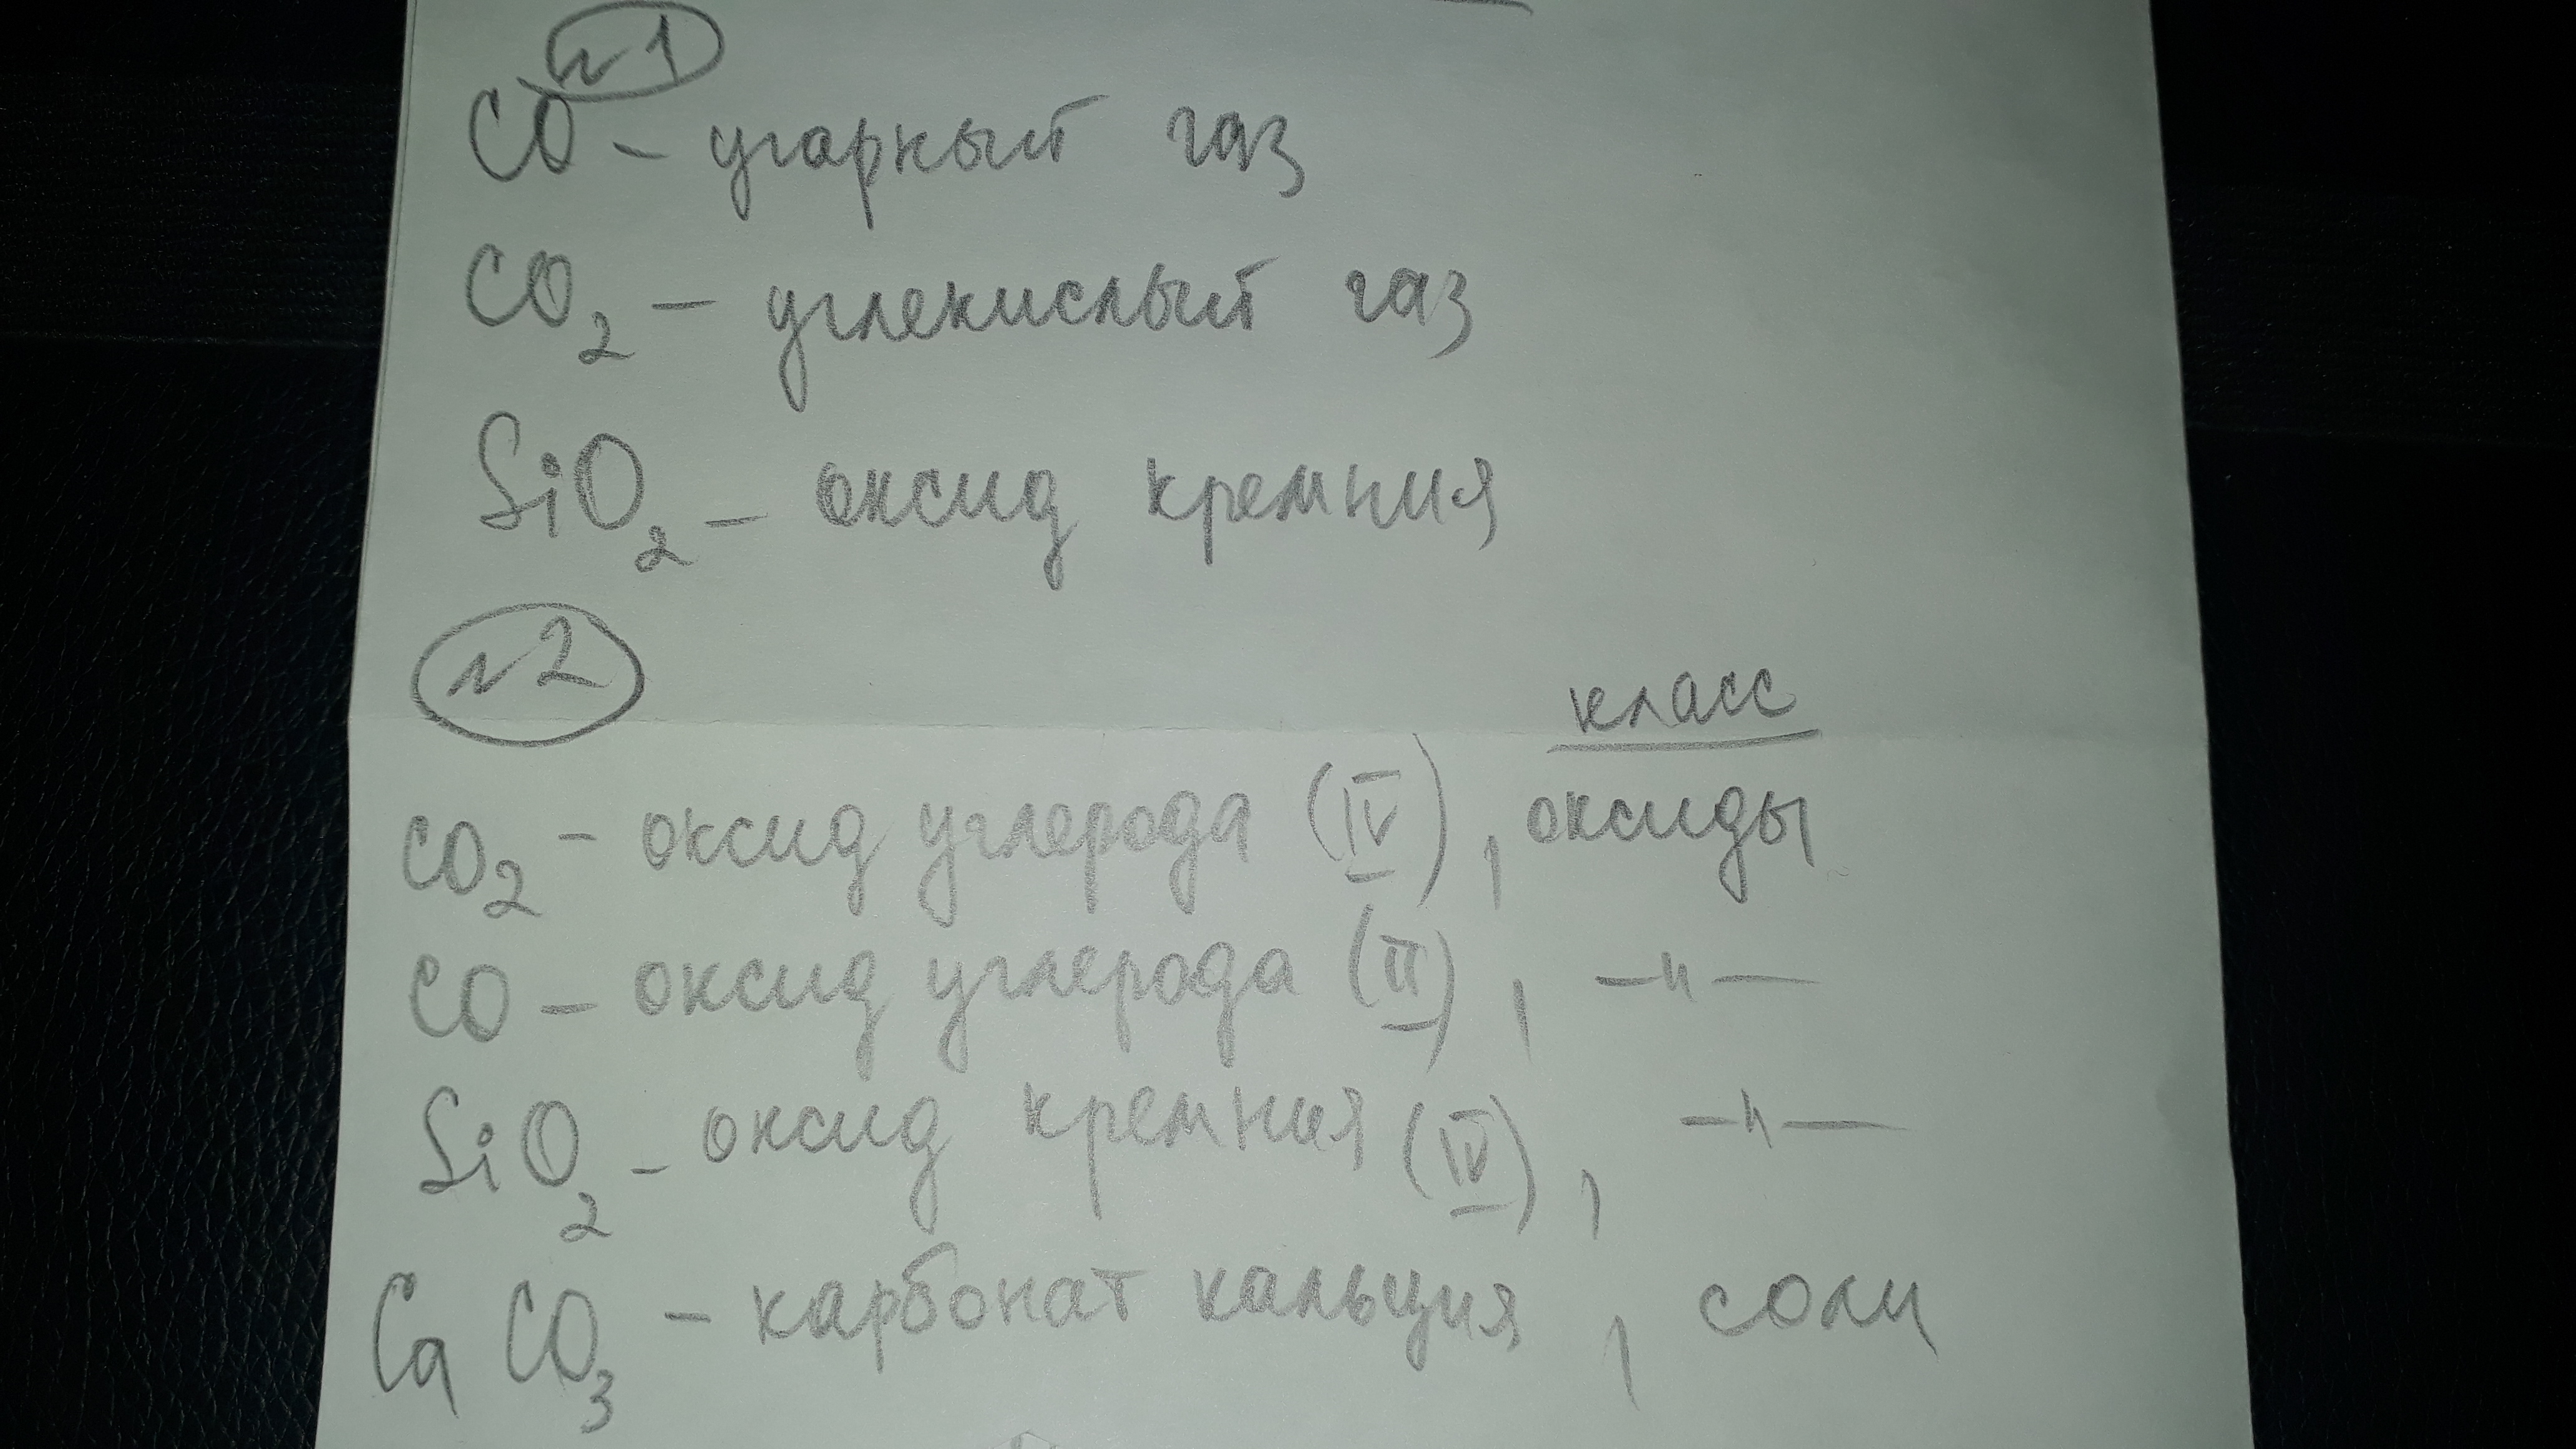 №1
CO - угарный газ
CO₂ - углекислый газ
SiO₂ - оксид кремния
№2
класс
CO₂ - оксид углерода (IV), оксиды
CO - оксид углерода (II), —"—
SiO₂ - оксид кремния (IV), —"—
CaCO₃ - карбонат кальция, соли